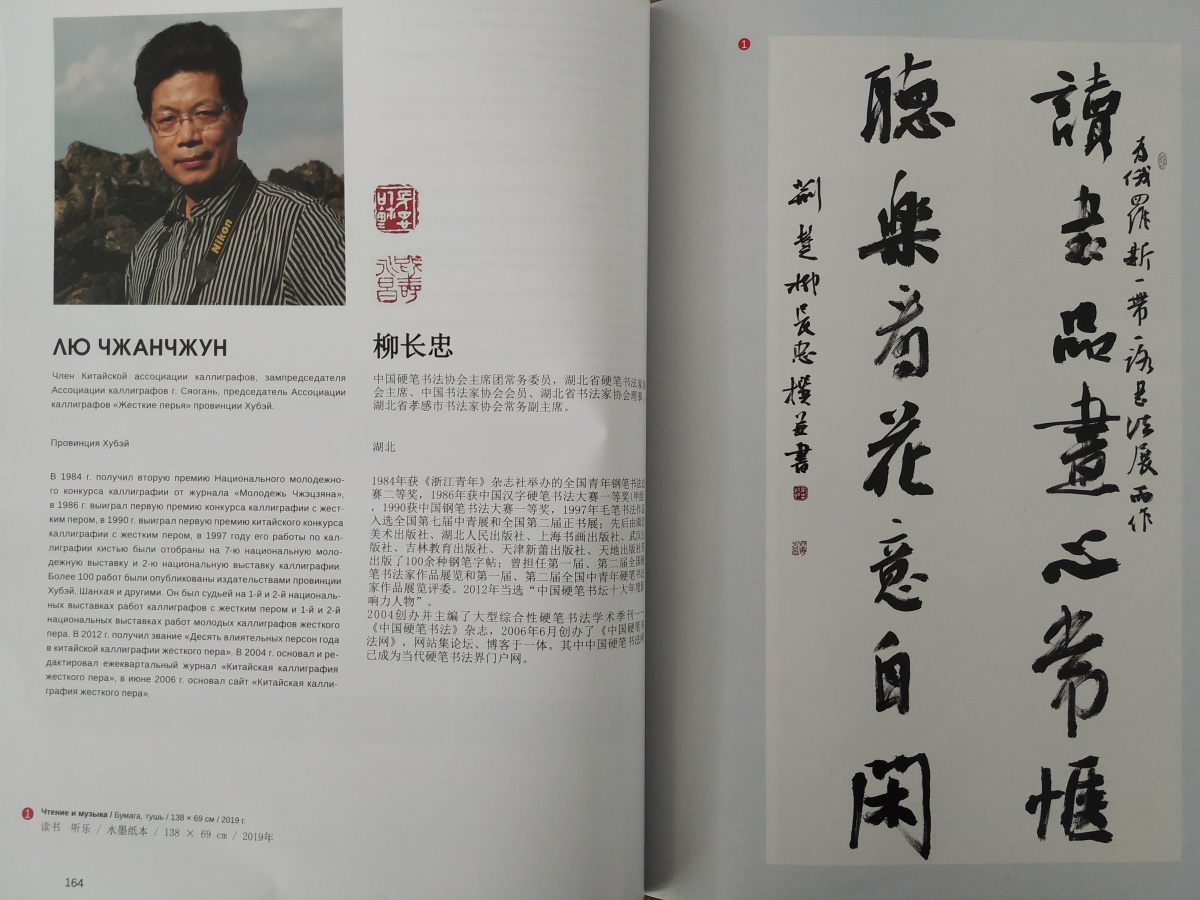 Nikon
ЛЮ ЧЖАНЧЖУН
Член Китайской ассоциации каллиграфов, зампредседателя
Ассоциации каллиграфов г. Сяогань, председатель Ассоциации
каллиграфов «Жесткие перья» провинции Хубэй.
Провинция Хубэй
В 1984 г. получил вторую премию Национального молодежно-
го конкурса каллиграфии от журнала «Молодежь Чжэцзяна»,
в 1986 г. выиграл первую премию конкурса каллиграфии с жест-
ким пером, в 1990 г. выиграл первую премию китайского конкурса
каллиграфии с жестким пером, в 1997 году его работы по кал-
лиграфии кистью были отобраны на 7-ю национальную моло-
дежную выставку и 2-ю национальную выставку каллиграфии.
Более 100 работ были опубликованы издательствами провинции
Хубэй, Шанхая и другими. Он был судьей на 1-й и 2-й националь-
ных выставках работ каллиграфов с жестким пером и 1-й и 2-й
национальных выставках работ молодых каллиграфов жесткого
пера. В 2012 г. получил звание «Десять влиятельных персон года
в китайской каллиграфии жесткого пера». В 2004 г. основал и ре-
дактировал ежеквартальный журнал «Китайская каллиграфия
жесткого пера», в июне 2006 г. основал сайт «Китайская калли-
графия жесткого пера».
柳长忠
中国硬笔书法协会主席团常务委员，湖北省硬笔书法家协
会主席、中国书法家协会会员、湖北省书法家协会理事、
湖北省孝感市书法家协会常务副主席。
湖北
1984年获《浙江青年》杂志社举办的全国青年钢笔书法
赛二等奖，1986年获中国汉字硬笔书法大赛一等奖
，1990获中国钢笔书法大赛一等奖，1997年毛笔书法作品
入选全国第七届中青展和全国第二届正书展；先后由湖北
美术出版社、湖北人民出版社、上海书画出版社、武汉
版社、吉林教育出版社、天津新蕾出版社、天地出版社
出版了100余种钢笔字帖；曾担任第一届、第二届全国硬
笔书法家作品展览和第一届、第二届全国中青年硬笔书法
家作品展览评委。2012年当选“中国硬笔书坛十大年度影
响力人物”。
2004创办并主编了大型综合性硬笔书法学术季刊
《中国硬笔书法》杂志，2006年6月创办了《中国硬笔书
法网》，网站集论坛、博客于一体。其中中国硬笔书法网
已成为当代硬笔书法界门户网。
1 Чтение и музыка / Бумага, тушь / 138 × 69 см / 2019 г.
读书 听乐 / 水墨纸本 / 138 × 69 cm / 2019年
164
1
为俄罗斯一带一路书法展而作
讀書品畫心常惬
聽樂看花意自閑
荆楚柳长忠撰并書